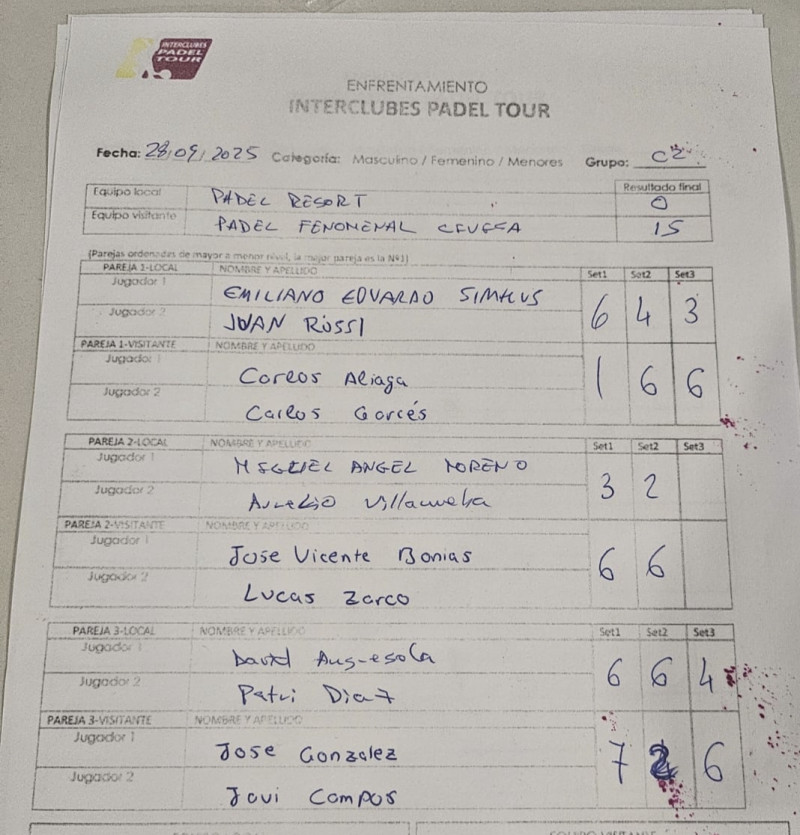 INTERCLUBES
PADEL
TOUR
ENFRENTAMIENTO
INTERCLUBES PADEL TOUR
Fecha: 28/09/2025 Categoría: Masculino / Femenino / Menores Grupo: C2
Resultado final
Equipo local PADEL RESORT 0
Equipo visitante PADEL FENOMENAL 15
(Parejas ordenadas de mayor a menor nivel, la mejor pareja es la Nº1)
PAREJA 1-LOCAL NOMBRE Y APELLIDO Set1 Set2 Set3
Jugador 1 EMILIANO EDUARDO
Jugador 2 JUAN ROSSI
6 4 3
PAREJA 1-VISITANTE NOMBRE Y APELLIDO
Jugador 1 Carlos Aliaga
Jugador 2 Carlos Garcés
1 6 6
PAREJA 2-LOCAL NOMBRE Y APELLIDO Set1 Set2 Set3
Jugador 1 MIGUEL ANGEL MORENO
Jugador 2 Aurelio
3 2
PAREJA 2-VISITANTE NOMBRE Y APELLIDO
Jugador 1 Jose Vicente Bonias
Jugador 2 Lucas Zarco
6 6
PAREJA 3-LOCAL NOMBRE Y APELLIDO Set1 Set2 Set3
Jugador 1 David
Jugador 2 Patri Diaz
6 6 4
PAREJA 3-VISITANTE NOMBRE Y APELLIDO
Jugador 1 Jose Gonzalez
Jugador 2 Javi Campos
7 2 6